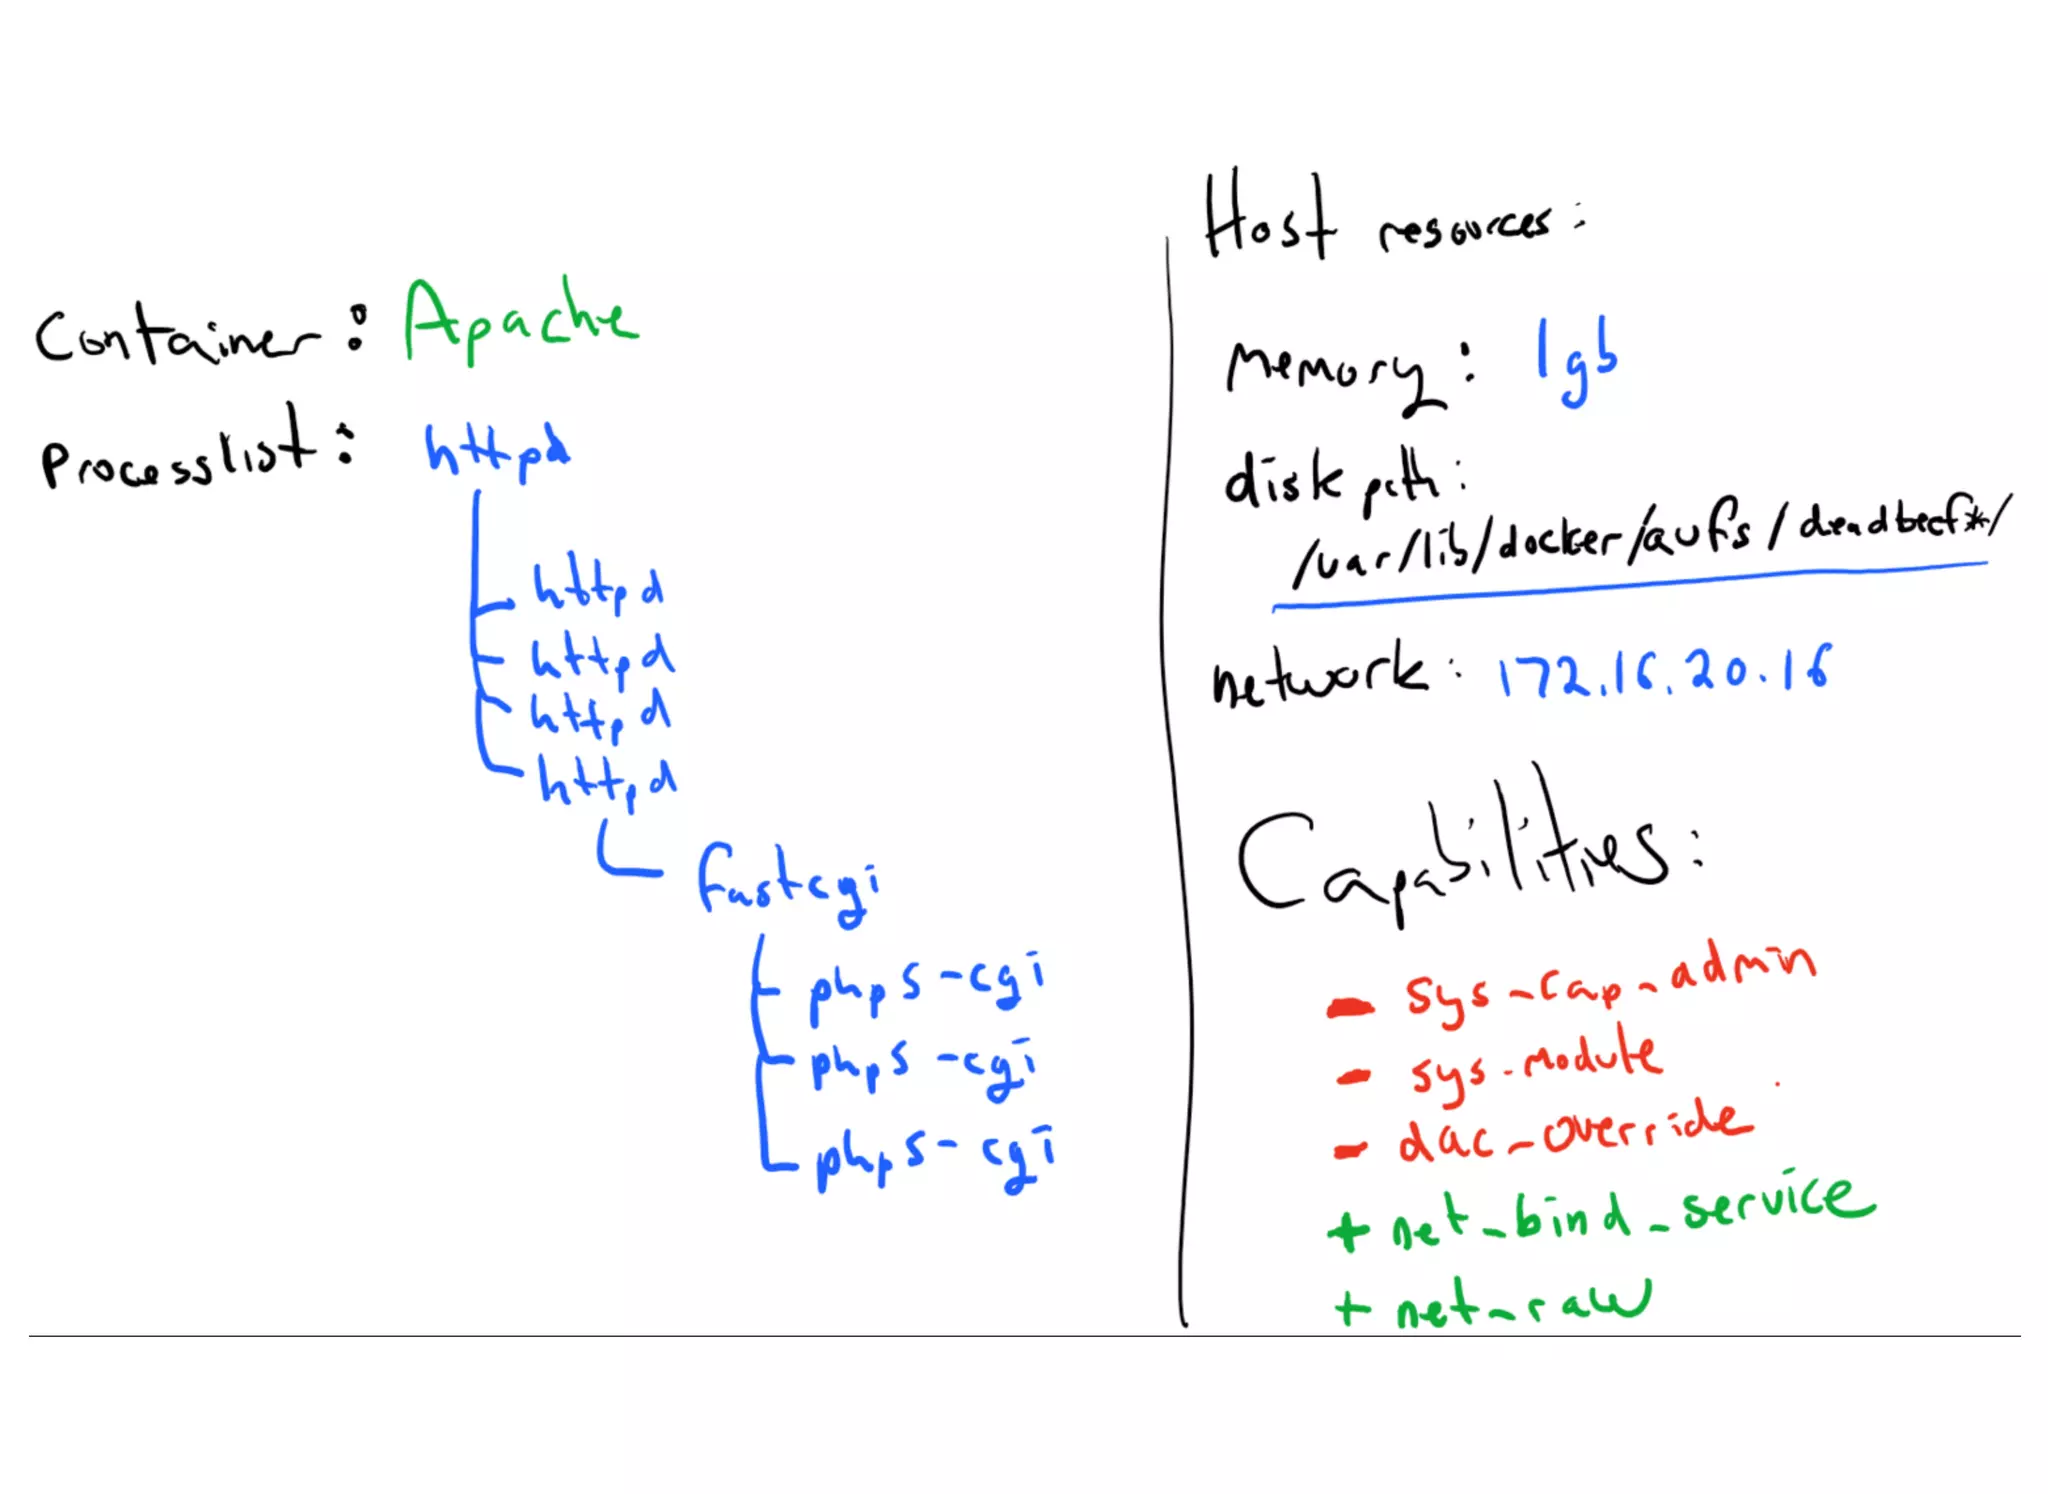 Container: Apache
Processlist: httpd
httpd
httpd
httpd
httpd
fastcgi
php5-cgi
php5-cgi
php5-cgi
Host resources:
Memory: 1gb
disk path:
/var/lib/docker/aufs/deadbeef*/
network: 172.16.20.16
Capabilities:
- sys-cap-admin
- sys-module
- dac-override
+ net_bind_service
+ net-raw